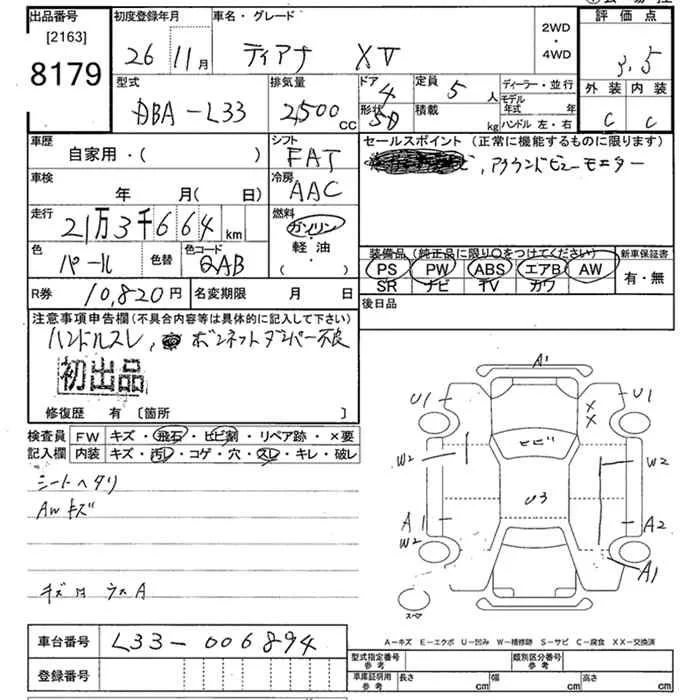 出品番号 初度登録年月 車名・グレード 2WD・4WD 評価点
[2163]
8179 26 11月 ティアナ XV 3.5
型式 排気量 ドア 4 定員 5人 ディーラー・並行 外装 内装
DBA-L33 2,500cc 形状 5D 積載 kg モデル年式 年 C C
ハンドル 左・右
車歴 シフト セールスポイント (正常に機能するものに限ります)
自家用・( ) FAT アラウンドビューモニター
車検 冷房
年 月( 日) AAC
走行 燃料
21万3千664km ガソリン
軽油
( ・ )
色 色替 色コード 装備品 (純正品に限り○をつけてください) 新車保証書
パール QAB PS PW ABS エアB AW 有・無
SR ナビ TV カワ
R券 10,820円 名変期限 月 日 後日品
注意事項申告欄 (不具合内容等は具体的に記入して下さい)
ハンドルスレ, ボンネットダンパー不良
初出品
修復歴 有 [箇所 ]
検査員 FW キズ・飛石・ヒビ割・リペア跡・×要
記入欄 内装 キズ・汚レ・コゲ・穴・スレ・キレ・破レ
シートヘタリ
AWキズ
キズ ウスA
A1
U1 U1
X
X
ヒビ
W2 W2
U3
A1 A2
W2 A1
スペア
車台番号 L33-006894
A-キズ E-エクボ U-凹み W-補修跡 S-サビ C-腐食 XX-交換済
登録番号
型式指定番号 参考 類別区分番号 参考
車庫証明用 参考 長さ cm 幅 cm 高さ cm